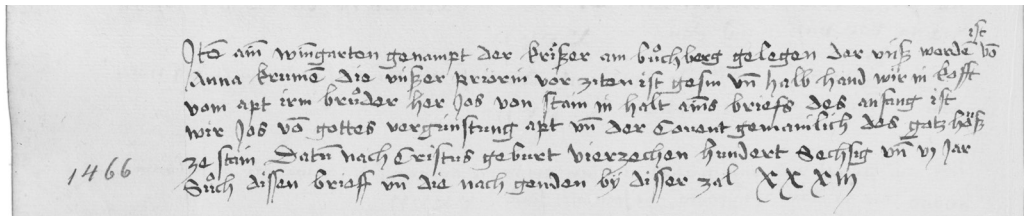 ist
Jtē ain wingarten genampt der krißer am bůchberg gelegen der vnß worden vō
Anna krumē die vnßer priorin vor ziten ist gesin vn̄ halb hand wir in kofft
vom apt irm brůder her Jos von stain in halt ains briefs des anfang ist
wir Jos vō gottes vergunstung apt vn̄ der Couent gemainlich des gotzhůß
ze stain Datū nach Cristus geburt vierzechen hundert Sechsig vn̄ vj Jar
1466
Sůch dissen brieff vn̄ die nach genden bÿ disser zal XXXIII